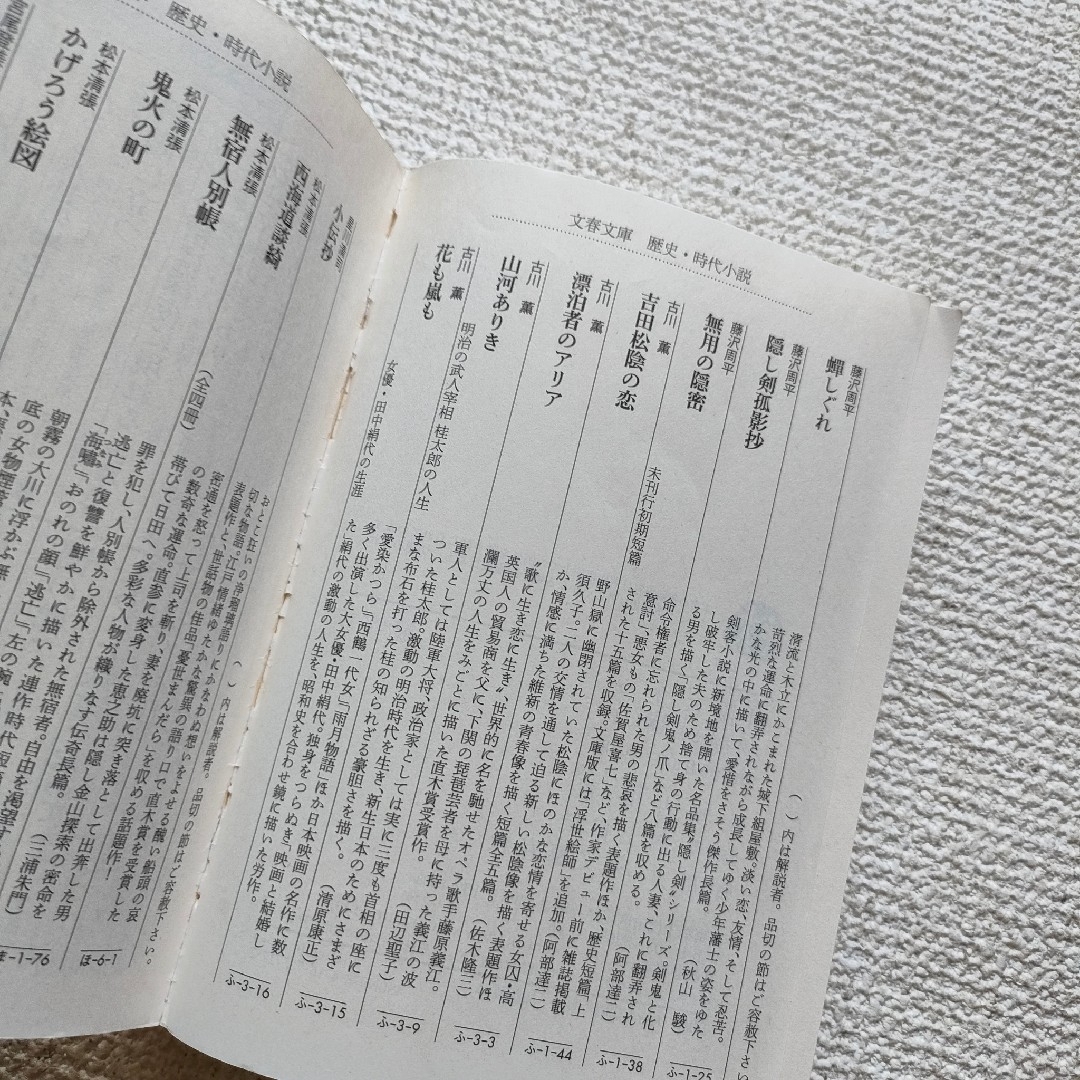 文春文庫 歴史・時代小説
( )内は解説者。品切の節はご容赦下さい
藤沢周平
蟬しぐれ
清流と木立にかこまれた城下組屋敷。淡い恋、友情、そして忍苦。
苛烈な運命に翻弄されながら成長してゆく少年藩士の姿をゆた
かな光の中に描いて、愛惜をさそう傑作長篇。
(秋山 駿)
ふ-1-25
藤沢周平
隠し剣孤影抄
剣客小説に新境地を開いた名品集〝隠し剣〟シリーズ。剣鬼と化
し破牢した夫のため捨て身の行動に出る人妻、これに翻弄され
る男を描く「隠し剣鬼ノ爪」など八篇を収める。
(阿部達二)
ふ-1-38
藤沢周平
無用の隠密
未刊行初期短篇
命令権者に忘れられた男の悲哀を描く表題作ほか、歴史短篇「上
意討」、悪女もの「佐賀屋喜七」など、作家デビュー前に雑誌掲載
された十五篇を収録。文庫版には「浮世絵師」を追加。
(阿部達二)
ふ-1-44
古川 薫
吉田松陰の恋
野山獄に幽閉されていた松陰にほのかな恋情を寄せる女囚・高
須久子。二人の交情を通して迫る新しい松陰像を描く表題作ほ
か、情感に満ちた維新の青春像を描く短篇全五篇。
(佐木隆三)
ふ-3-3
古川 薫
漂泊者のアリア
〝歌に生き恋に生き〟世界的に名を馳せたオペラ歌手藤原義江。
英国人の貿易商を父に、下関の琵琶芸者を母に持った義江の波
瀾万丈の人生をみごとに描いた直木賞受賞作。
(田辺聖子)
ふ-3-9
古川 薫
山河ありき
明治の武人宰相 桂太郎の人生
軍人としては陸軍大将、政治家としては実に三度も首相の座に
ついた桂太郎。激動の明治時代を生き、新生日本のためにさまざ
まな布石を打った桂の知られざる豪胆さを描く。
(清原康正)
ふ-3-15
古川 薫
花も嵐も
女優・田中絹代の生涯
「愛染かつら」「西鶴一代女」「雨月物語」ほか日本映画の名作に数
多く出演した大女優・田中絹代。独身をつらぬき〝映画と結婚し
た〟絹代の激動の人生を、昭和史を合わせ鏡に描いた労作。
ふ-3-16
歴史・時代小説
( )内は解説者。品切の節はご容赦下さい。
小伝抄
おとこ狂いの浄瑠璃語りにかなわぬ想いをよせる醜い船頭の哀
切な物語。江戸情緒ゆたかな驚異の語り口で直木賞を受賞した
表題作と、世話物の佳品「憂世まんだら」を収める話題作!
ほ-6-1
松本清張
西海道談綺
(全四冊)
密通を怒って上司を斬り、妻を廃坑に突き落として出奔した男
の数奇な運命。直参に変身した恵之助は隠し金山探索の密命を
帯びて日田へ。多彩な人物が織りなす伝奇長篇。
(三浦朱門)
ま-1-76
松本清張
無宿人別帳
罪を犯し、人別帳から除外された無宿者。自由を渇望す
逃亡と復讐を鮮やかに描いた連作時代短
「海嘯」「おのれの顔」「逃亡」「左の腕」
松本清張
鬼火の町
朝霧の大川に浮かぶ無
底の女物煙管
松本清張
かげろう絵図